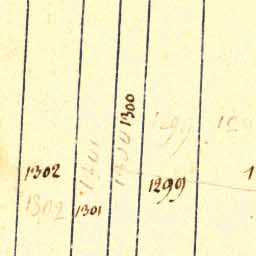 1300
1299
1301
1300
1302
1299
1302
1301